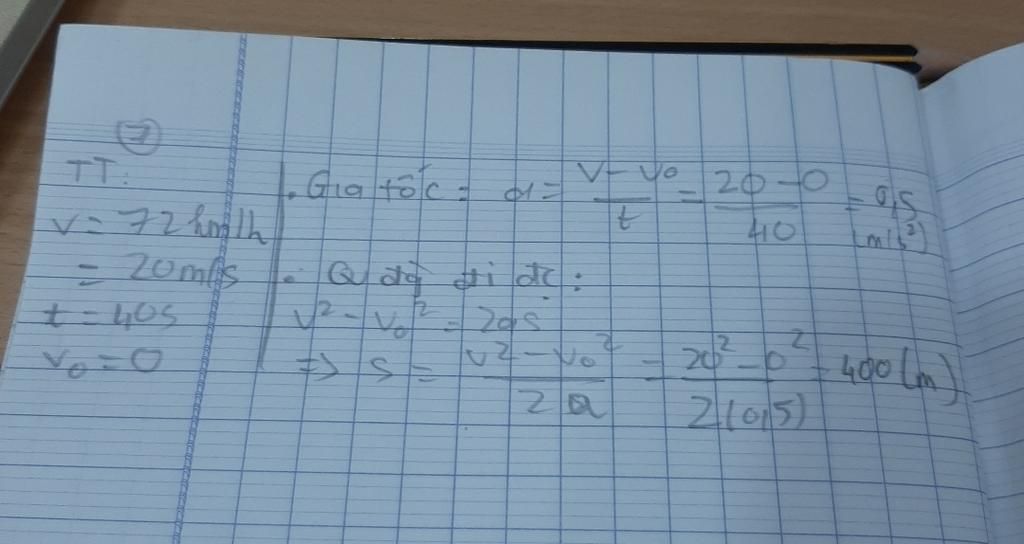 7
TT:
v = 72 km/h
= 20 m/s
t = 40s
v₀ = 0
. Gia tốc = a = (v - v₀)/t = (20 - 0)/40 = 0,5 (m/s²)
. Q đg đi đc :
v² - v₀² = 2as
=> s = (v² - v₀²)/(2a) = (20² - 0²)/(2(0,5)) = 400 (m)